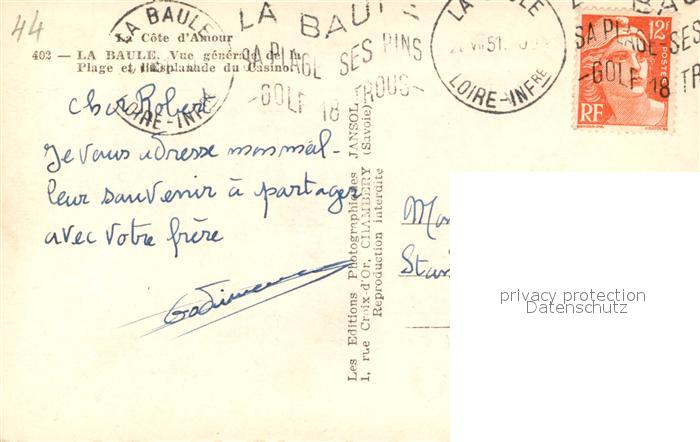 44
La Côte d'Amour
402 — LA BAULE. Vue générale de la
Plage et l'Esplanade du Casino
LA BAULE
LOIRE-INFRE
LA BAULE
SA PLAGE SES PINS
—GOLF 18 TROUS—
LA BAULE
VII 51
LOIRE-INFRE
SA PLAGE SES
—GOLF 18 TR
12F
POSTES
RF
Cher Robert
Je vous adresse mon meil-
leur souvenir à partager
avec votre frère
Les Editions Photographiques JANSOL
1, rue Croix-d'Or, CHAMBÉRY (Savoie)
Reproduction interdite
privacy protection
Datenschutz